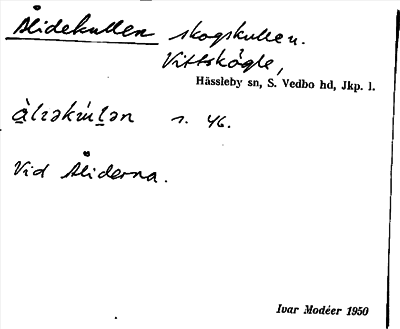 Ålidekullen skogskulle n.
Vittskögle,
Hässleby sn, S. Vedbo hd, Jkp. l.
s. 46.
Vid Åliderna.
Ivar Modéer 1950